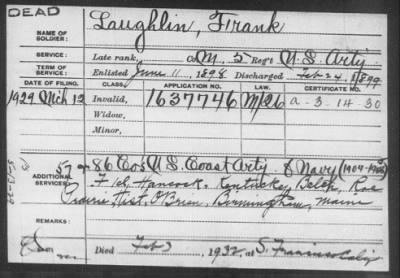 DEAD
NAME OF SOLDIER: Laughlin, Frank
SERVICE: Late rank, Co M. 5 Reg't U.S. Arty
TERM OF SERVICE: Enlisted June 11, 1898 Discharged Feb 24, 1899
DATE OF FILING. CLASS. APPLICATION NO. LAW. CERTIFICATE NO.
1929 Mch 12 Invalid, 1637746 A-3-14-30
Widow,
Minor,
ADDITIONAL SERVICES: 57 & 86 Co's U.S. Coast Arty & Navy
Hancock, Kentucky,
Prairie, Hist, O'Brien, Birmingham, Maine
REMARKS:
Died Feb 1932, at S. Francisco Calif